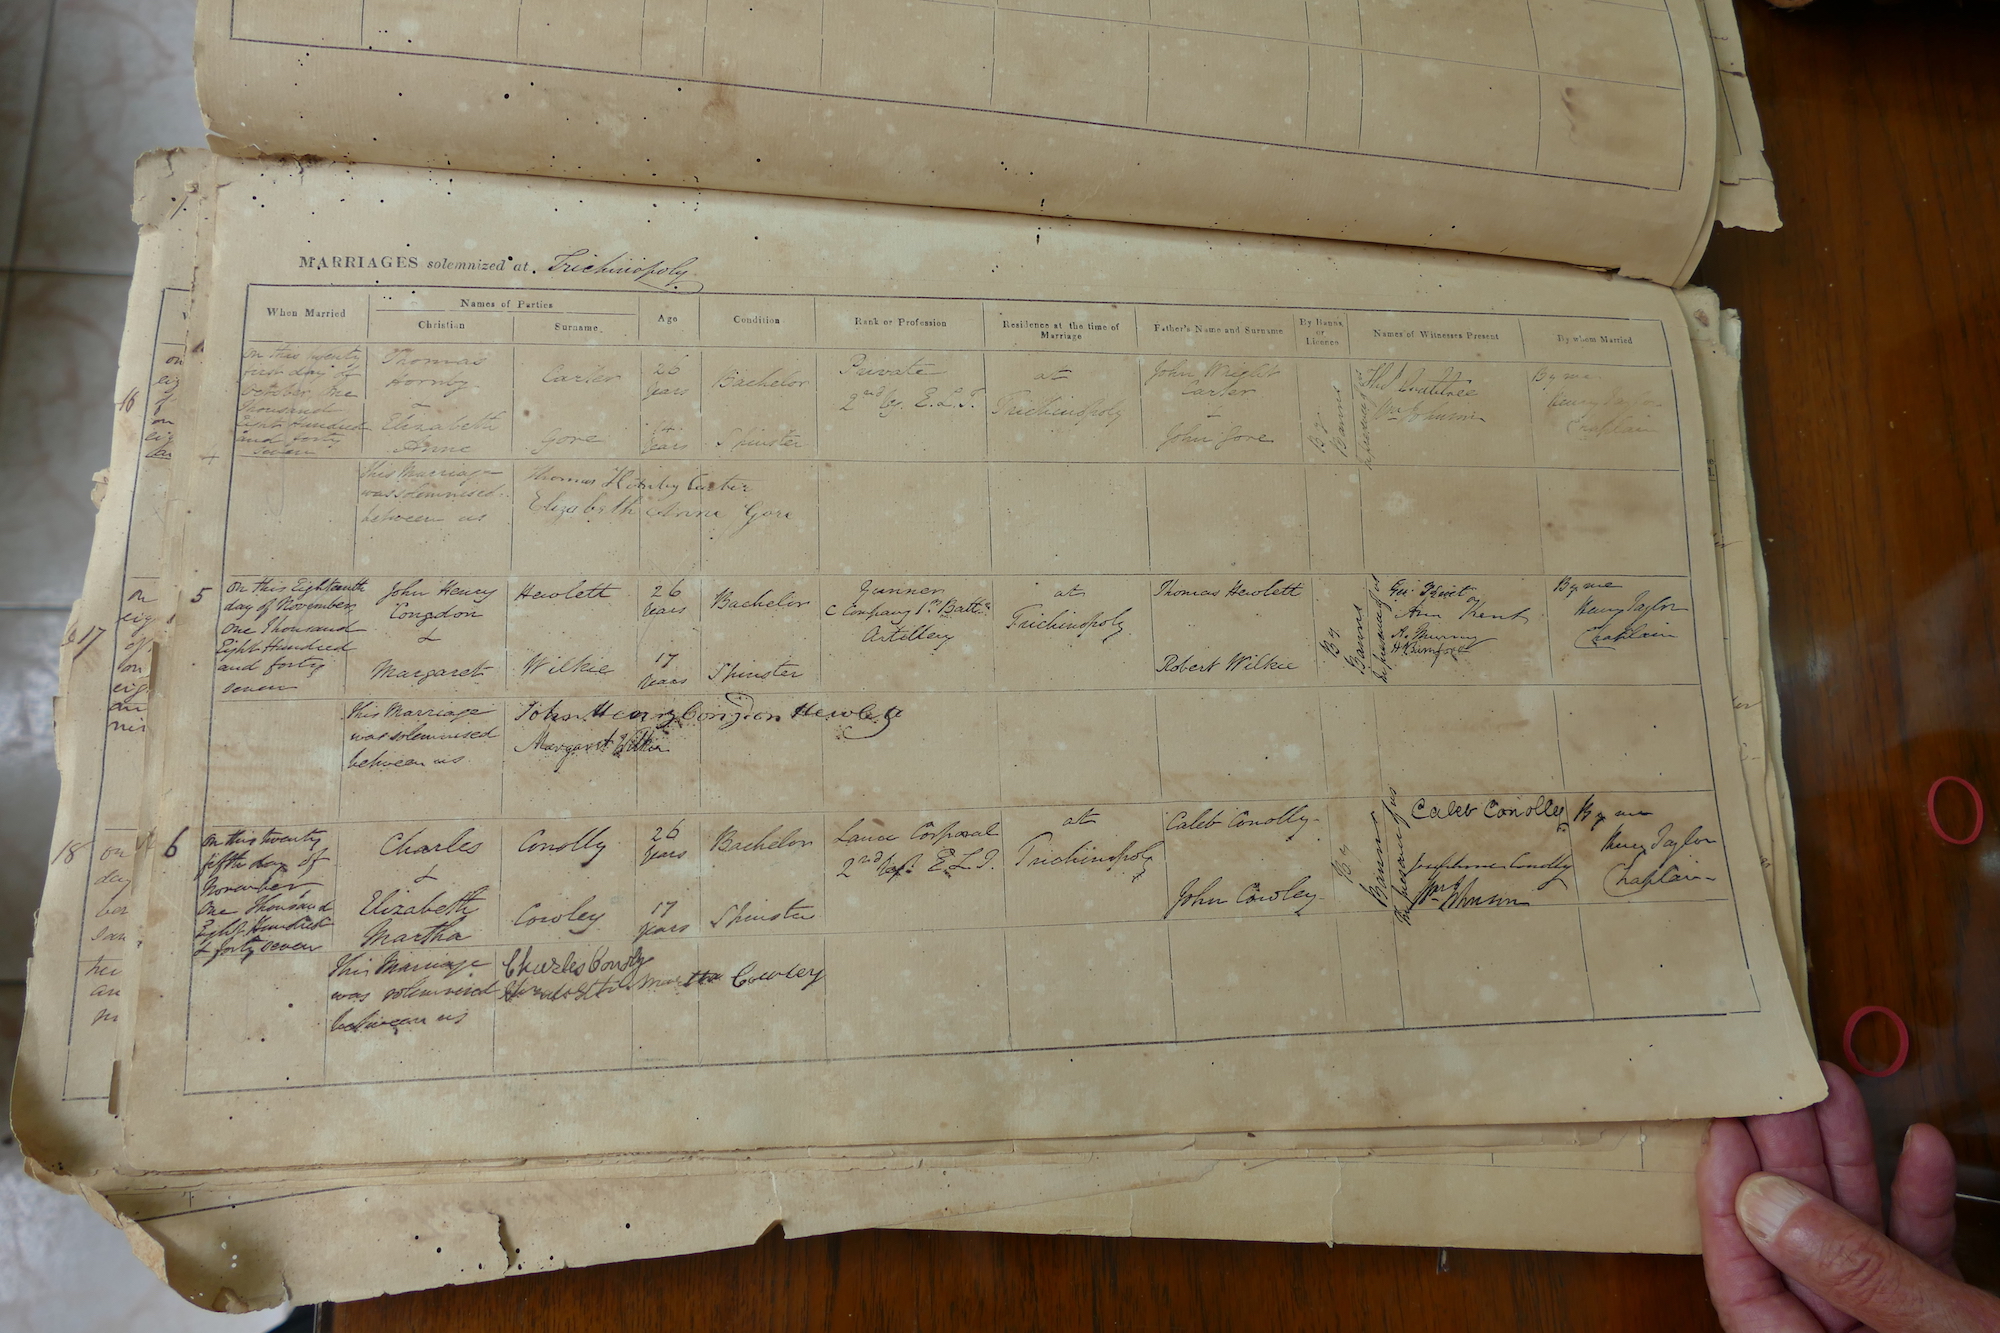 MARRIAGES solemnized at Trichinopoly
When Married
Names of Parties
Christian
Surname
Age
Condition
Rank or Profession
Residence at the time of Marriage
Father's Name and Surname
By Banns or Licence
Names of Witnesses Present
By whom Married
On this twenty
first day of
October One
Thousand
Eight Hundred
and forty
seven
Thomas
Hornby
&
Elizabeth
Anne
Carter
Gore
26
Years
Years
Bachelor
Spinster
Private
2nd E. L. I.
at
Trichinopoly
John Wright
Carter
&
John Gore
By
Banns
in presence of us
Wm Johnson
By me
Henry Taylor
Chaplain
This Marriage
was solemnised
between us
Thomas Hornby Carter
Elizabeth Anne Gore
5
On this Eighteenth
day of November
One Thousand
Eight Hundred
and forty
seven
John Henry
Congdon
&
Margaret
Hewlett
Wilkie
26
Years
17
Years
Bachelor
Spinster
Gunner
C Company 1st Battn
Artillery
at
Trichinopoly
Thomas Hewlett
Robert Wilkie
By
Banns
in presence of us
Ann Kent
A. Murray
By me
Henry Taylor
Chaplain
This Marriage
was solemnised
between us
John Henry Congdon Hewlett
Margaret Wilkie
6
On this twenty
fifth day of
November
One Thousand
Eight Hundred
& forty seven
Charles
&
Elizabeth
Martha
Conolly
Cowley
26
Years
17
Years
Bachelor
Spinster
Lance Corporal
2nd E. L. I.
at
Trichinopoly
Caleb Conolly
John Cowley
By
Banns
in presence of us
Caleb Conolly
Josephine Conolly
Wm Johnson
By me
Henry Taylor
Chaplain
This Marriage
was solemnised
between us
Charles Conolly
Martha Cowley
16
17
18